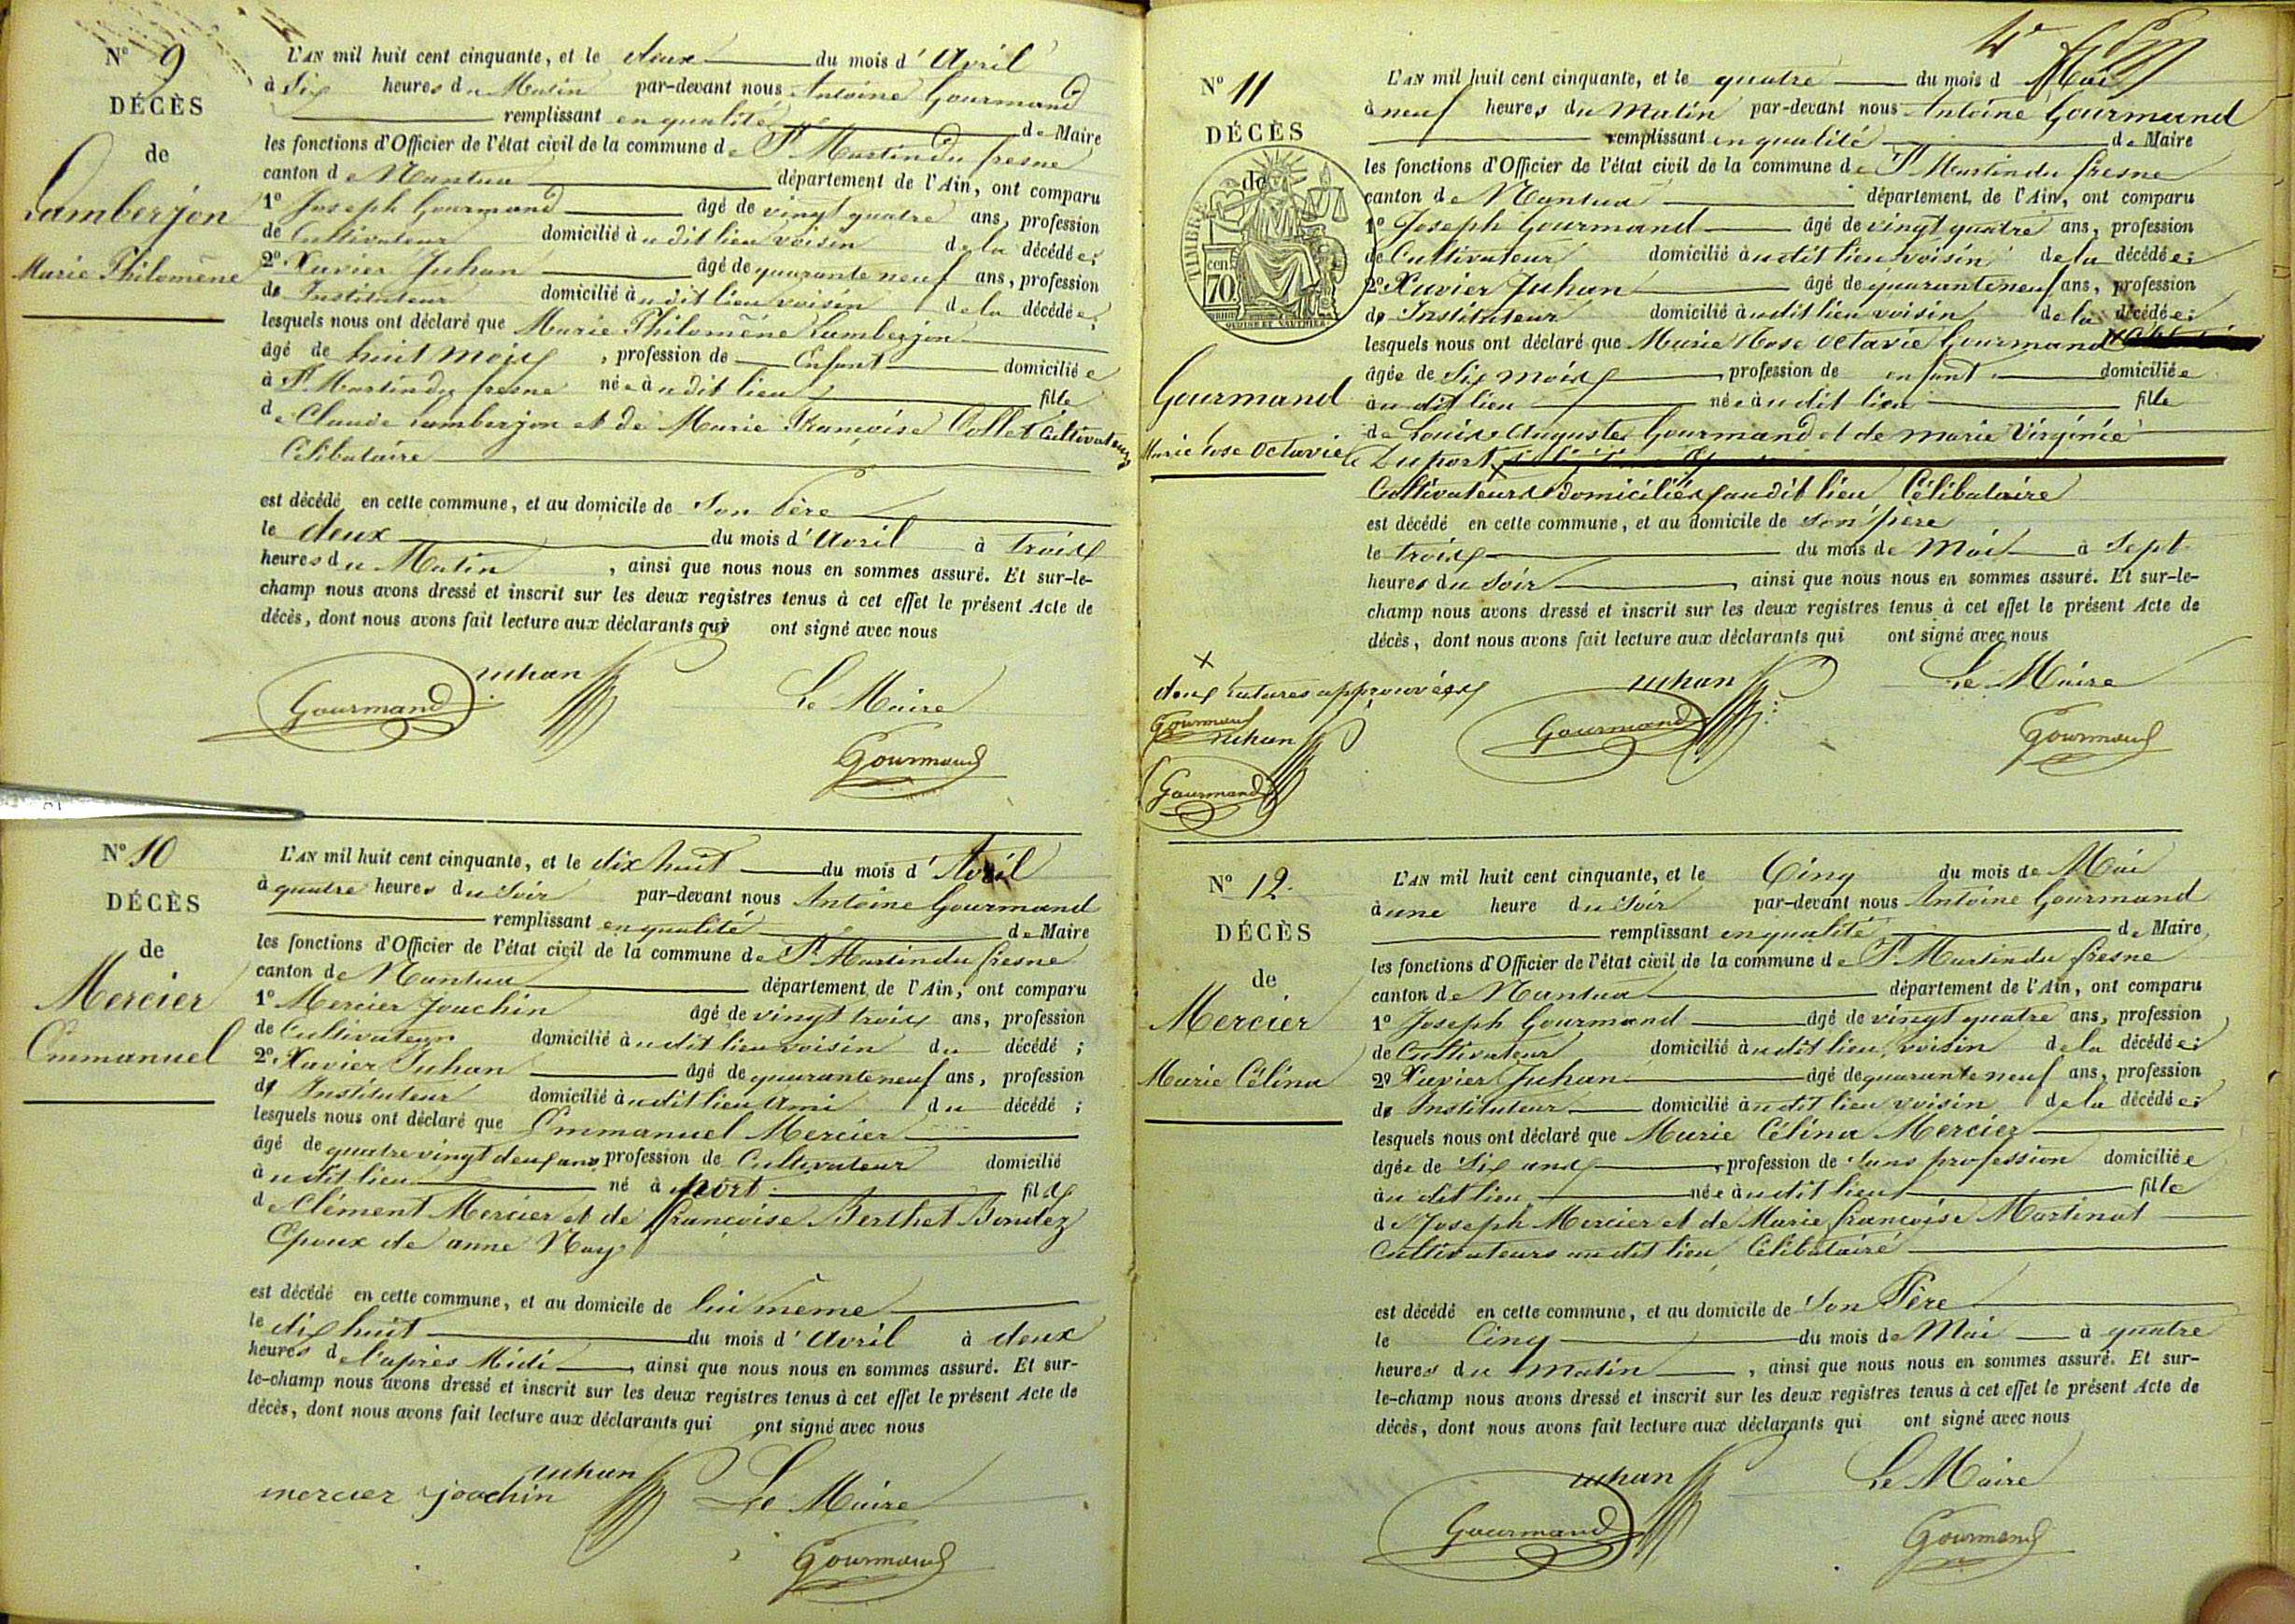 N° 9
DÉCÈS
de
Lamberjon
Marie Philomène
L'AN mil huit cent cinquante, et le deux du mois d'Avril
à Six heures du Matin par-devant nous Antoine Gourmand
remplissant en qualité de Maire
les fonctions d'Officier de l'état civil de la commune de St Martin du fresne
canton de Nantua département de l'Ain, ont comparu
1° Joseph Gourmand âgé de vingt quatre ans, profession
de Cultivateur domicilié audit lieu voisin de la décédée;
2° Xavier Juhan âgé de quarante neuf ans, profession
de Instituteur domicilié audit lieu voisin de la décédée;
lesquels nous ont déclaré que Marie Philomène Lamberjon
âgé de huit Mois, profession de Enfant domiciliée
à St Martin du fresne née audit lieu fille
de Claude Lamberjon et de Marie Françoise Collet Cultivateurs
Célibataire
est décédé en cette commune, et au domicile de Son Père
le deux du mois d'Avril à trois
heures du Matin, ainsi que nous nous en sommes assuré. Et sur-le-
champ nous avons dressé et inscrit sur les deux registres tenus à cet effet le présent Acte de
décès, dont nous avons fait lecture aux déclarants qui ont signé avec nous
Juhan
Gourmand
Le Maire
Gourmand
N° 10
DÉCÈS
de
Mercier
Emmanuel
L'AN mil huit cent cinquante, et le dix huit du mois d'Avril
à quatre heures du Soir par-devant nous Antoine Gourmand
remplissant en qualité de Maire
les fonctions d'Officier de l'état civil de la commune de St Martin du fresne
canton de Nantua département de l'Ain, ont comparu
1° Mercier Joachin âgé de vingt trois ans, profession
de Cultivateur domicilié audit lieu voisin du décédé;
2° Xavier Juhan âgé de quarante neuf ans, profession
de Instituteur domicilié audit lieu Ami du décédé;
lesquels nous ont déclaré que Emmanuel Mercier
âgé de quatre vingt deux ans, profession de Cultivateur domicilié
audit lieu né à Port fils
de Clément Mercier et de françoise Berthet Bondez
Epoux de anne Nay
est décédé en cette commune, et au domicile de lui même
le dix huit du mois d'Avril à deux
heures de l'après Midi, ainsi que nous nous en sommes assuré. Et sur-
le-champ nous avons dressé et inscrit sur les deux registres tenus à cet effet le présent Acte de
décès, dont nous avons fait lecture aux déclarants qui ont signé avec nous
Juhan
mercier joachin
Le Maire
Gourmand
N° 11
DÉCÈS
de
TIMBRE
cent
70
Gourmand
Marie Rose Octavie
L'AN mil huit cent cinquante, et le quatre du mois d Mai
à neuf heures du Matin par-devant nous Antoine Gourmand
remplissant en qualité de Maire
les fonctions d'Officier de l'état civil de la commune de St Martin du fresne
canton de Nantua département de l'Ain, ont comparu
1° Joseph Gourmand âgé de vingt quatre ans, profession
de Cultivateur domicilié audit lieu voisin de la décédée;
2° Xavier Juhan âgé de quarante neuf ans, profession
de Instituteur domicilié audit lieu voisin de la décédée;
lesquels nous ont déclaré que Marie Rose Octavie Gourmand
âgée de Six mois, profession de enfant domiciliée
audit lieu née audit lieu fille
de Louis Auguste Gourmand et de Marie Virginie
Duport
Cultivateurs domiciliés audit lieu Célibataire
est décédé en cette commune, et au domicile de son père
le trois du mois de Mai à Sept
heures du Soir, ainsi que nous nous en sommes assuré. Et sur-le-
champ nous avons dressé et inscrit sur les deux registres tenus à cet effet le présent Acte de
décès, dont nous avons fait lecture aux déclarants qui ont signé avec nous
x
deux ratures approuvées
Gourmand
Juhan
Gourmand
Juhan
Gourmand
Le Maire
Gourmand
N° 12.
DÉCÈS
de
Mercier
Marie Célina
L'AN mil huit cent cinquante, et le Cinq du mois de Mai
à une heure du Soir par-devant nous Antoine Gourmand
remplissant en qualité de Maire
les fonctions d'Officier de l'état civil de la commune de St Martin du fresne
canton de Nantua département de l'Ain, ont comparu
1° Joseph Gourmand âgé de vingt quatre ans, profession
de Cultivateur domicilié audit lieu, voisin de la décédée;
2° Xavier Juhan âgé de quarante neuf ans, profession
de Instituteur domicilié audit lieu voisin de la décédée;
lesquels nous ont déclaré que Marie Célina Mercier
âgée de Six ans, profession de Sans profession domiciliée
audit lieu née audit lieu fille
de Joseph Mercier et de Marie françoise Martinat
Cultivateurs audit lieu, Célibataire
est décédé en cette commune, et au domicile de Son Père
le Cinq du mois de Mai à quatre
heures du matin, ainsi que nous nous en sommes assuré. Et sur-
le-champ nous avons dressé et inscrit sur les deux registres tenus à cet effet le présent Acte de
décès, dont nous avons fait lecture aux déclarants qui ont signé avec nous
Juhan
Gourmand
Le Maire
Gourmand